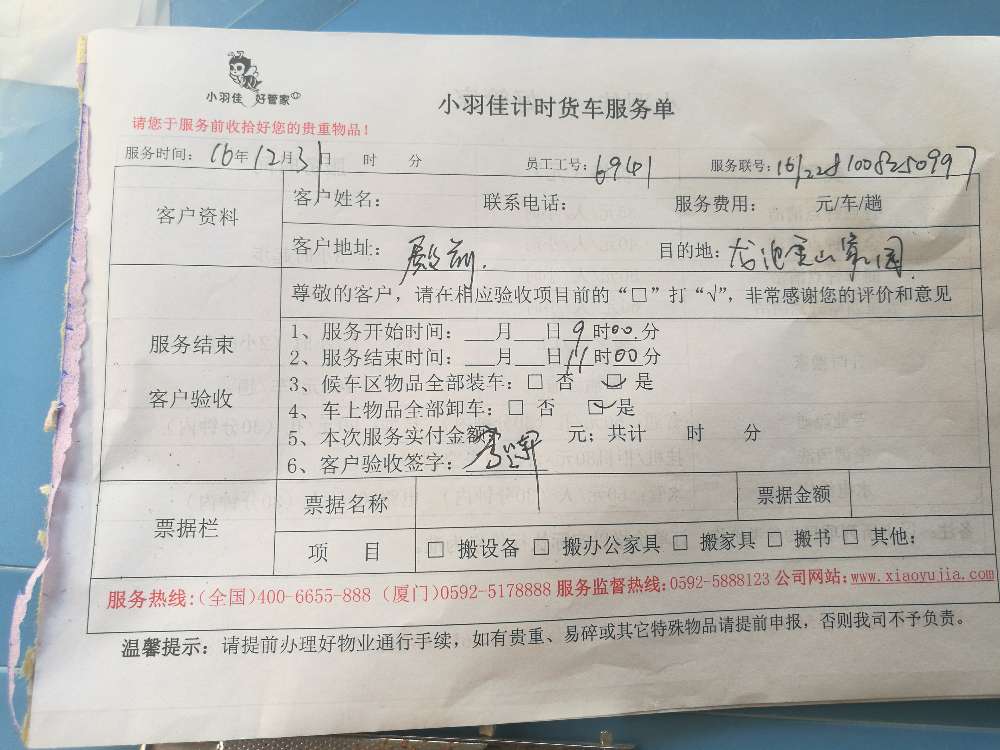 小羽佳 好管家
小羽佳计时货车服务单
请您于服务前收拾好您的贵重物品！
服务时间：16年12月31日 时 分 员工工号：6941 服务联号：1612281008250997
客户资料
客户姓名： 联系电话： 服务费用： 元/车/趟
客户地址：殿前. 目的地：龙池宝山家园
服务结束
客户验收
尊敬的客户，请在相应验收项目前的“□”打“√”，非常感谢您的评价和意见
1、服务开始时间：___月___日9时00.分
2、服务结束时间：___月___日11时00分
3、候车区物品全部装车：□ 否 □ 是
4、车上物品全部卸车：□ 否 □是
5、本次服务实付金额 元；共计 时 分
6、客户验收签字：
票据栏
票据名称 票据金额
项 目 □ 搬设备 □ 搬办公家具 □ 搬家具 □ 搬书 □ 其他：
服务热线:(全国)400-6655-888 (厦门)0592-5178888 服务监督热线:0592-5888123 公司网站:www.xiaoyujia.com
温馨提示：请提前办理好物业通行手续，如有贵重、易碎或其它特殊物品请提前申报，否则我司不予负责。